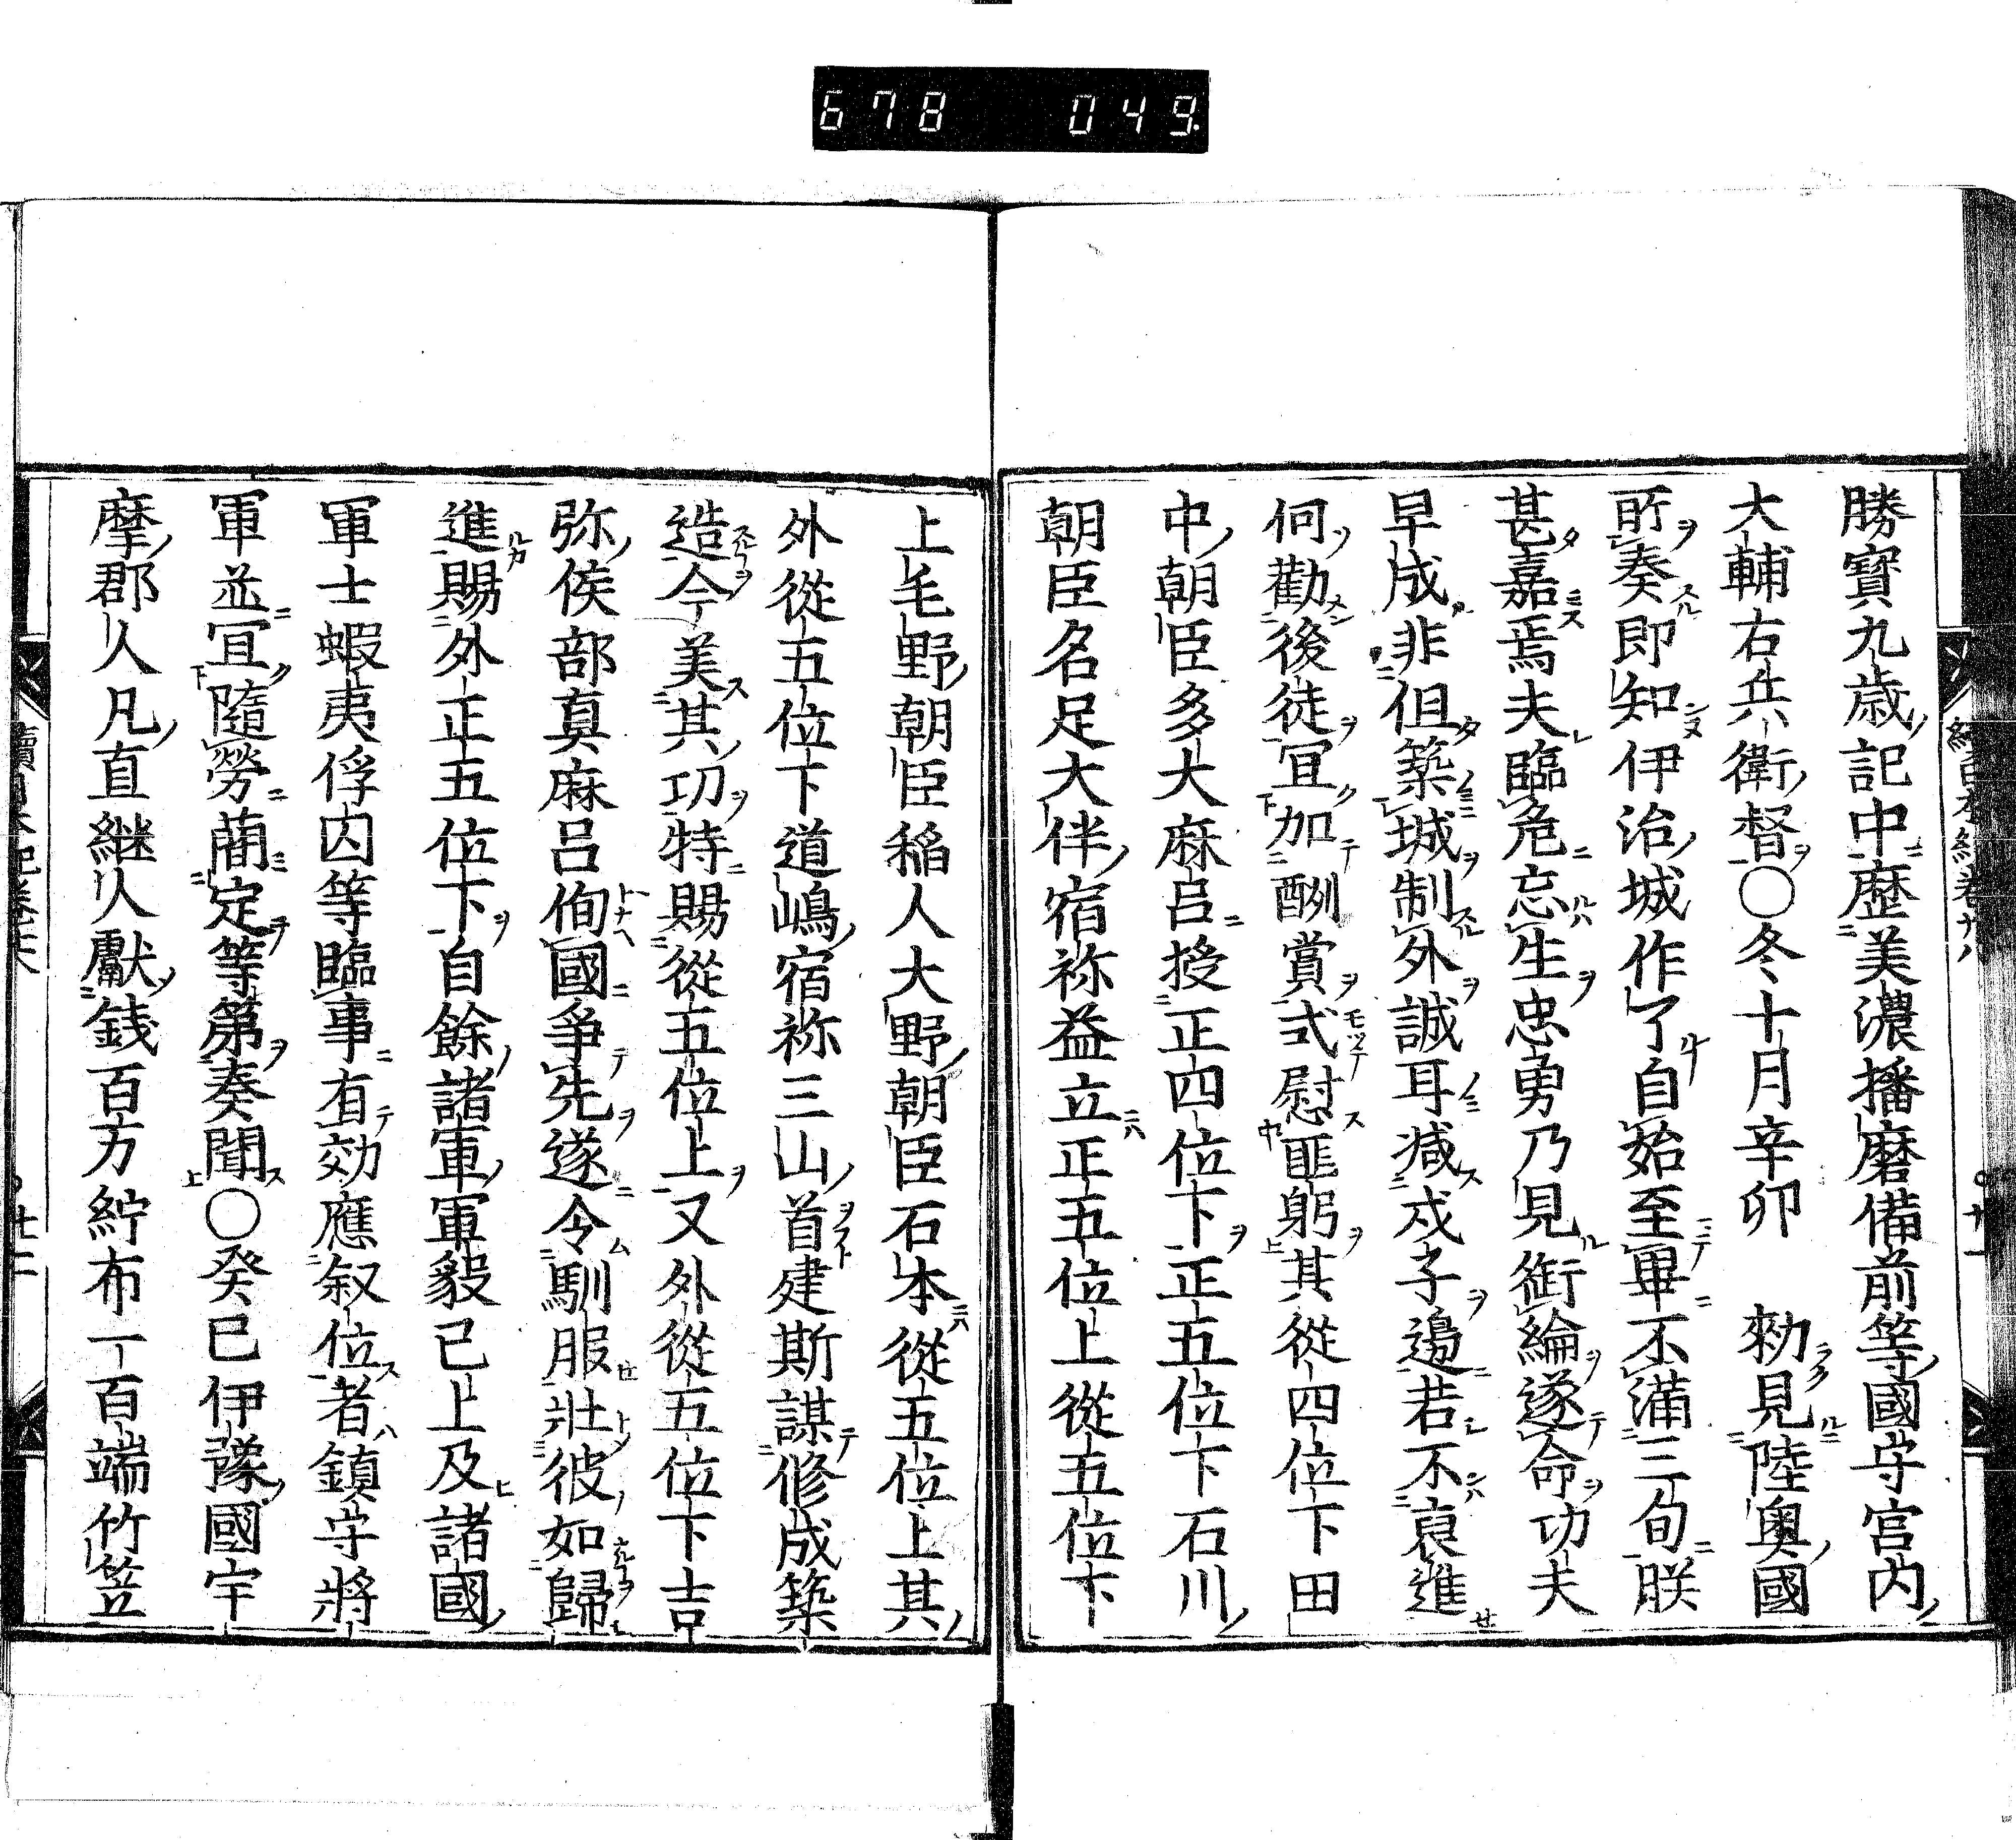 678 049
勝寶九歳記中歴美濃播磨備前等國守宮内
大輔右兵衛督○冬十月辛卯　勑見陸奧國
所奏即知伊治城作了自始至畢不滿三旬朕
甚嘉焉夫臨危忘生忠勇乃見銜綸遂命功夫
早成非但築城制外誠耳减戍子邊若不裒進
何勸後徒冝加酬賞式慰匪躬其從四位下田
中朝臣多大麻呂授正四位下正五位下石川
朝臣名足大伴宿祢益立正五位上從五位下
上毛野朝臣稲人大野朝臣石本從五位上其
外從五位下道嶋宿祢三山首建斯謀修成築
造今美其功特賜從五位上又外從五位下吉
弥侯部真麻呂侚國争先遂令馴服壯彼如歸
進賜外正五位下自餘諸軍軍毅已上及諸國
軍士蝦夷俘囚等臨事有効應叙位者鎮守將
軍並冝隨勞蕳定等第奏聞○癸巳伊豫國宇
摩郡人凡直継人獻銭百万紵布一百端竹笠